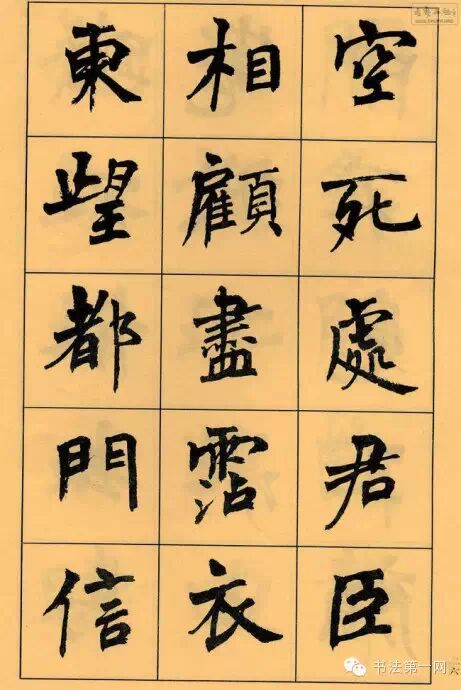 空死處君臣
相顧盡霑衣
東望都門信
书法第一网
六